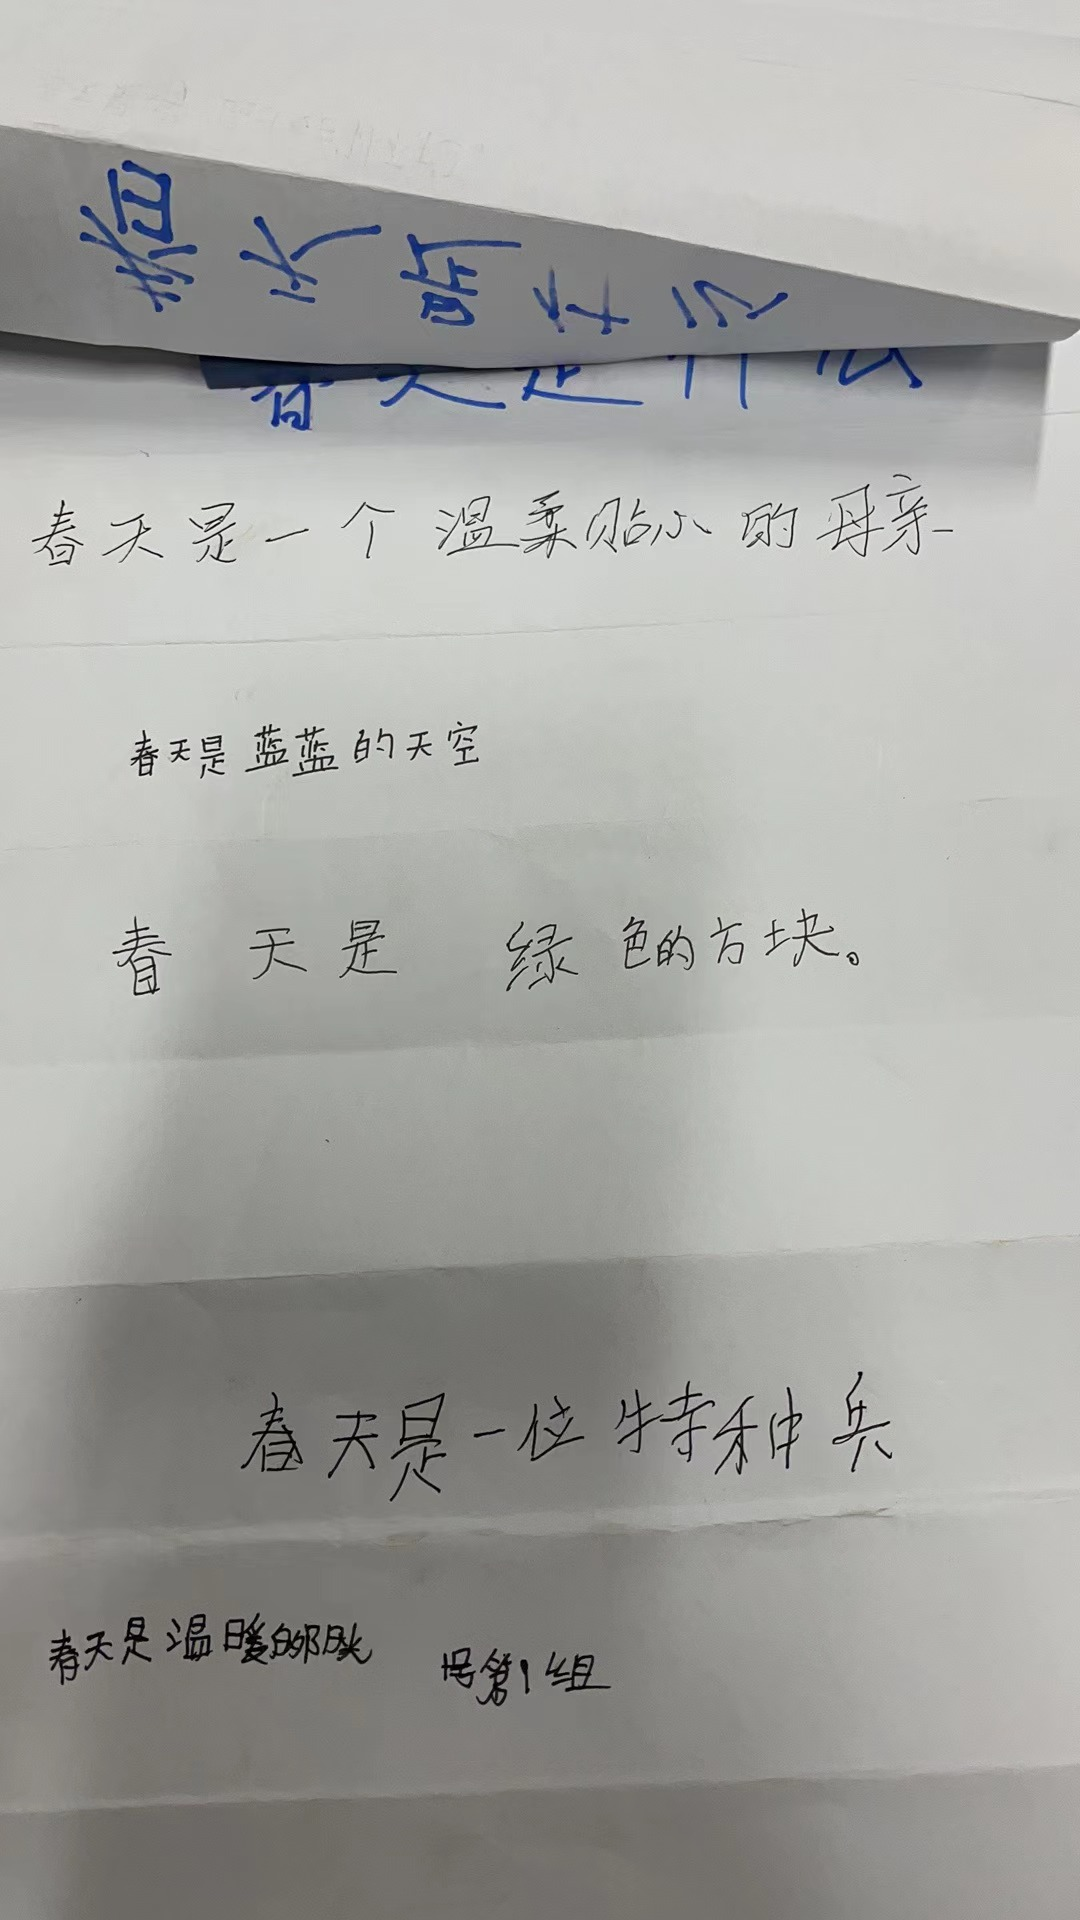 春天是什么
春天是一个温柔贴心的母亲
春天是蓝蓝的天空
春天是 绿色的方块。
春天是一位特种兵
春天是温暖的阳光
第1组